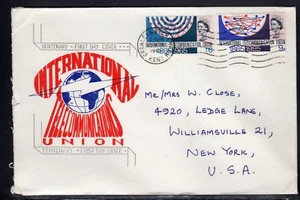 CENTENARY · FIRST DAY COVER
INTERNATIONAL
TELECOMMUNICATION
UNION
CENTENARY · FIRST DAY COVER
KENT
1865 1965
INTERNATIONAL TELECOMMUNICATION UNION
1865 1965
9d
MR/MRS W. CLOSE,
4920, LEDGE LANE,
WILLIAMSVILLE 21,
NEW YORK,
U.S.A.